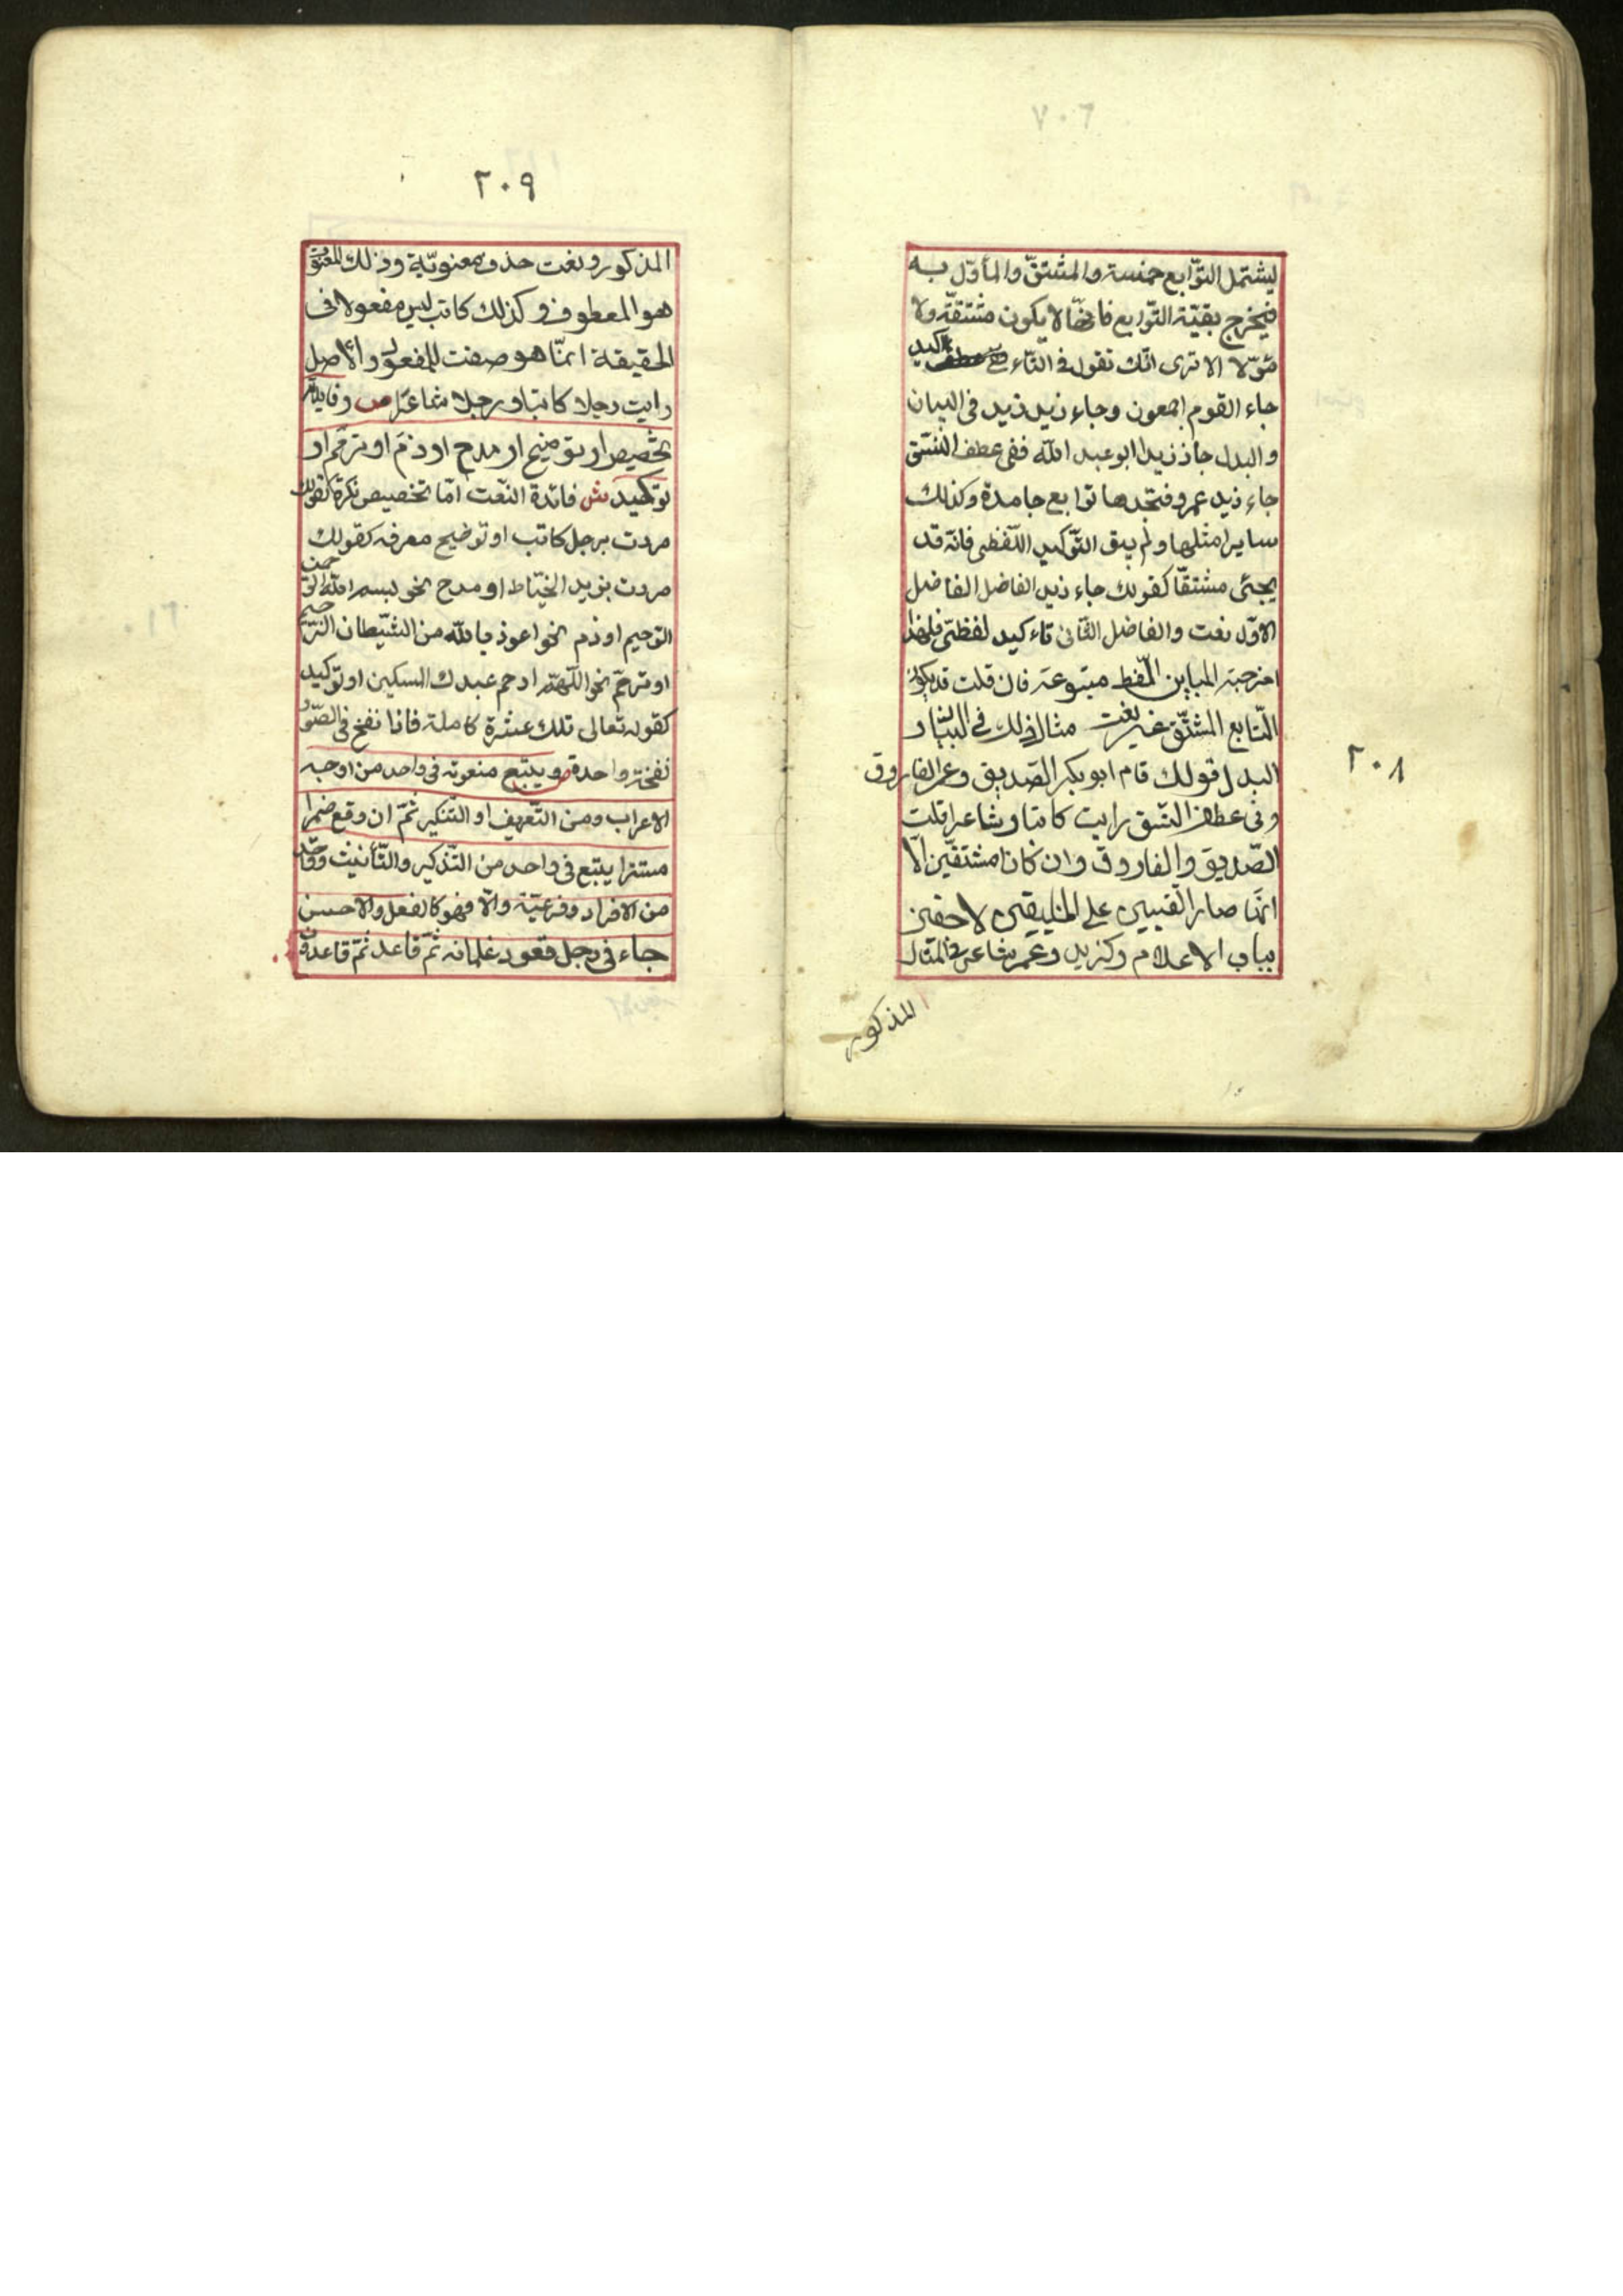 ليشتمل التوّابع خمسة والمشتقّ والمأوّل به
فيخرج بقيّة التوّابع فانّها لا يكون مشتقّة ولا
مؤوّلا الا ترى انّك تقول فى التّاءكيد
جاء القوم اجمعون وجاء زيد زيد فى البيان
والبدل جاء زيد ابو عبد الله ففى عطف النّسق
جاء زيد عمرو فتجدها توابع جامدة وكذلك
ساير امثلها ولم يبق التّوكيد اللّفظى فانّه قد
يجئى مشتقّا كقولك جاء زيد الفاضل الفاضل
الاوّل نعت والفاضل الثّانى تاءكيد لفظىّ فلهذا
اخرجته المباين اللّفظ متبوعه فان قلت قد يكون
التّابع المشتّق غير نعت مثال ذلك فى البيان و
البدل قولك قام ابو بكر الصّديق وعمر الفاروق
وفى عطف النّسق رايت كاتبا وشاعرا قلت
الصّديق والفاروق وان كانا مشتقّين الّا
انّهما صار القبيين على الخليقين لاحقين
بباب الاعلام وكزيد وعمر شاعر فى المثال
المذكور
٢٠٨
٢٠٩
المذكور ونعت حذف معنويّة وذلك المنعوت
هو المعطوف وكذلك كاتب ليس مفعولا فى
الحقيقة انمّا هو صفت للمفعول والاصل
رايت رجلا كاتبا ورجلا شاعرا ص وفايدته
تخصيص او توضيح او مدح او ذمّ او ترحّم او
توكيد ش فائدة النّعت امّا تخصيص نكرة كقولك
مررت برجل كاتب او توضيح معرفه كقولك
مررت بزيد الخيّاط او مدح نحو بسم الله الرّحمن
الرّحيم او ذم نحو اعوذ بالله من الشّيطان الرّجيم
او ترحّم نحو اللّهمّ ارحم عبدك المسكين او توكيد
كقوله تعالى تلك عشرة كاملة فاذا نفخ فى الصّور
نفخة واحدة ص ويتبع منعوته فى واحد من اوجه
الاعراب ومن التّعريف او التّنكير ثمّ ان وقع ضمرا
مستترا يتبع فى واحد من التّذكير والتّأنيث وواحد
من الافراد وفرعيّة والّا فهو كالفعل والاحسن
جاء فى رجل قعود غلمانه ثمّ قاعد ثمّ قاعدون